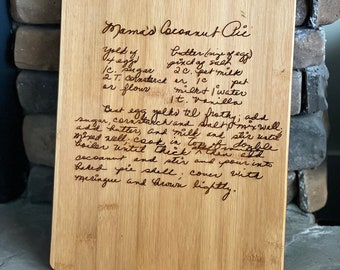 Mama's Coconut Pie
yolk of butter (size of egg)
4 eggs pinch of salt
1 c. sugar 2 c. pet milk
2 T. cornstarch or 1 c pet
or flour milk + 1 water
1 t. vanilla
Beat egg yolks til frothy, add
sugar, cornstarch and salt + mix well
add butter and milk and stir until
mixed well cook in double
boiler until thick then add
coconut and stir and pour into
baked pie shell; cover with
meringue and brown lightly.